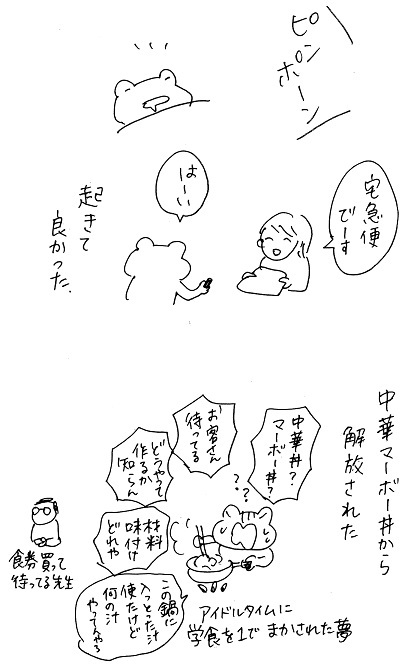 ピンポーン
宅急便
でーす
はーい
起きて
良かった.
中華マーボー丼から
解放された
中華丼?
マーボー丼?
お客さん
待ってる
どうやって
作るか
知らん
材料
味付け
どれや
この鍋に
入っとった汁
使たけど
何の汁
やってんやろ
???
食券買って
待ってる先生
アイドルタイムに
学食を1で まかされた夢